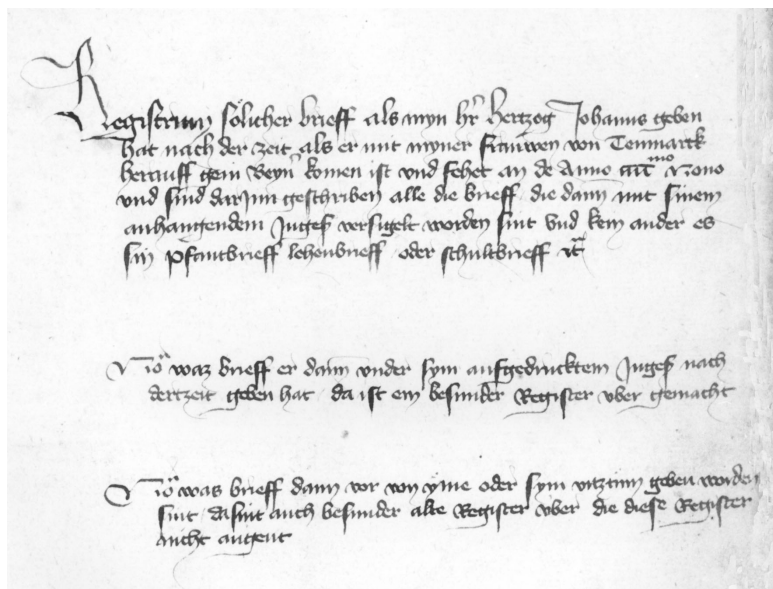 Registrum solicher brieff als myn hr̄ hertzog Johanns geben
hat nach der zeit als er mit myner frauwen von Tenmarck
herauff gein Beyrn komen ist und fehet an de Anno mo Nono
und sind darjnn geschriben alle die brieff die dann mit sinem
anhangendem Jngeß versigelt worden sint und kein ander es
sin pfantbrieff lehenbrieff oder schultbrieff
waz brieff er dann under sym aufgedrucktem Jngeß nach
derzeit geben hat da ist ein besunder Register uber gemacht
was brieff dann vor von yme oder sym vitztum geben worden
sint da sint auch besunder alte Register uber die diese Register
nicht angent